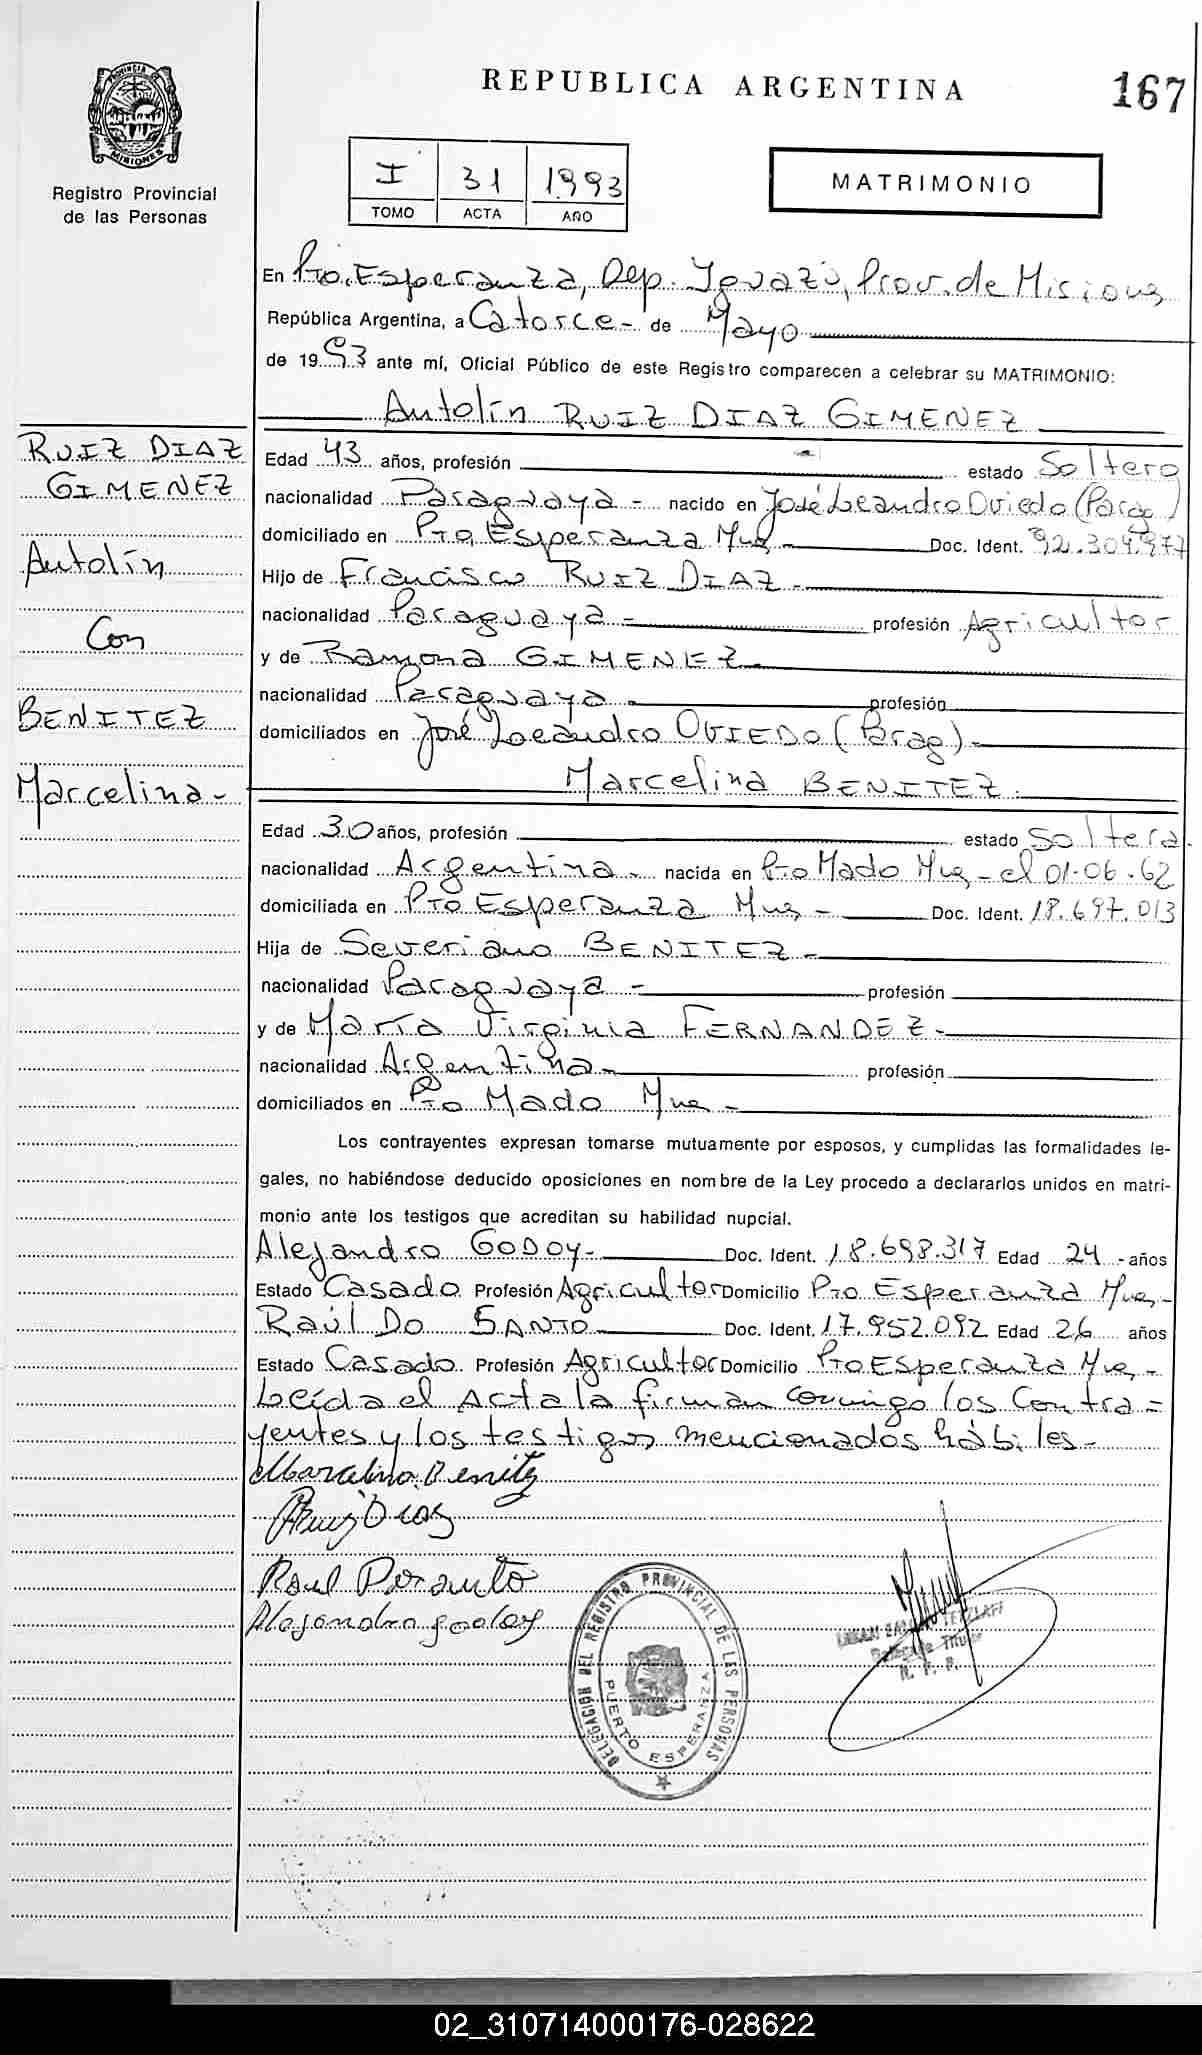 REPUBLICA ARGENTINA
167
PROVINCIA DE
MISIONES
Registro Provincial
de las Personas
I 31 1993
TOMO ACTA AÑO
MATRIMONIO
En Pto. Esperanza, Dep. Iguazú, Prov. de Misiones
República Argentina, a Catorce - de Mayo
de 1993 ante mí, Oficial Público de este Registro comparecen a celebrar su MATRIMONIO:
Antolín RUIZ DIAZ GIMENEZ
RUIZ DIAZ
GIMENEZ
Antolín
Con
BENITEZ
Marcelina -
Edad 43 años, profesión estado Soltero
nacionalidad Paraguaya - nacido en José Leandro Oviedo (Parag)
domiciliado en Pto Esperanza Mnes - Doc. Ident. 92.304.977
Hijo de Francisco RUIZ DIAZ -
nacionalidad Paraguaya - profesión Agricultor
y de Ramona GIMENEZ
nacionalidad Paraguaya - profesión
domiciliados en José Leandro OVIEDO (Parag) -
Marcelina BENITEZ.
Edad 30 años, profesión estado Soltera.
nacionalidad Argentina - nacida en Pto Mado Mnes - el 01-06-62
domiciliada en Pto Esperanza Mnes - Doc. Ident. 18.697.013
Hija de Severiano BENITEZ -
nacionalidad Paraguaya - profesión
y de María Virginia FERNANDEZ -
nacionalidad Argentina - profesión
domiciliados en Pto Mado Mnes -
Los contrayentes expresan tomarse mutuamente por esposos, y cumplidas las formalidades le-
gales, no habiéndose deducido oposiciones en nombre de la Ley procedo a declararlos unidos en matri-
monio ante los testigos que acreditan su habilidad nupcial.
Alejandro GODOY - Doc. Ident. 18.698.317 Edad 24 - años
Estado Casado Profesión Agricultor Domicilio Pto Esperanza Mnes -
Raúl DO SANTO Doc. Ident. 17.952.092 Edad 26 años
Estado Casado Profesión Agricultor Domicilio Pto Esperanza Mnes -
Leída el Acta la firman conmigo los Contra=
yentes y los testigos mencionados hábiles -
Marcelina Benitez
Ruiz Diaz
Raul Do santo
Alejandro godoy
DELEGACIÓN DEL REGISTRO PROVINCIAL DE LAS PERSONAS
PUERTO ESPERANZA
Delegada Titular
R. P. P.
02_310714000176-028622